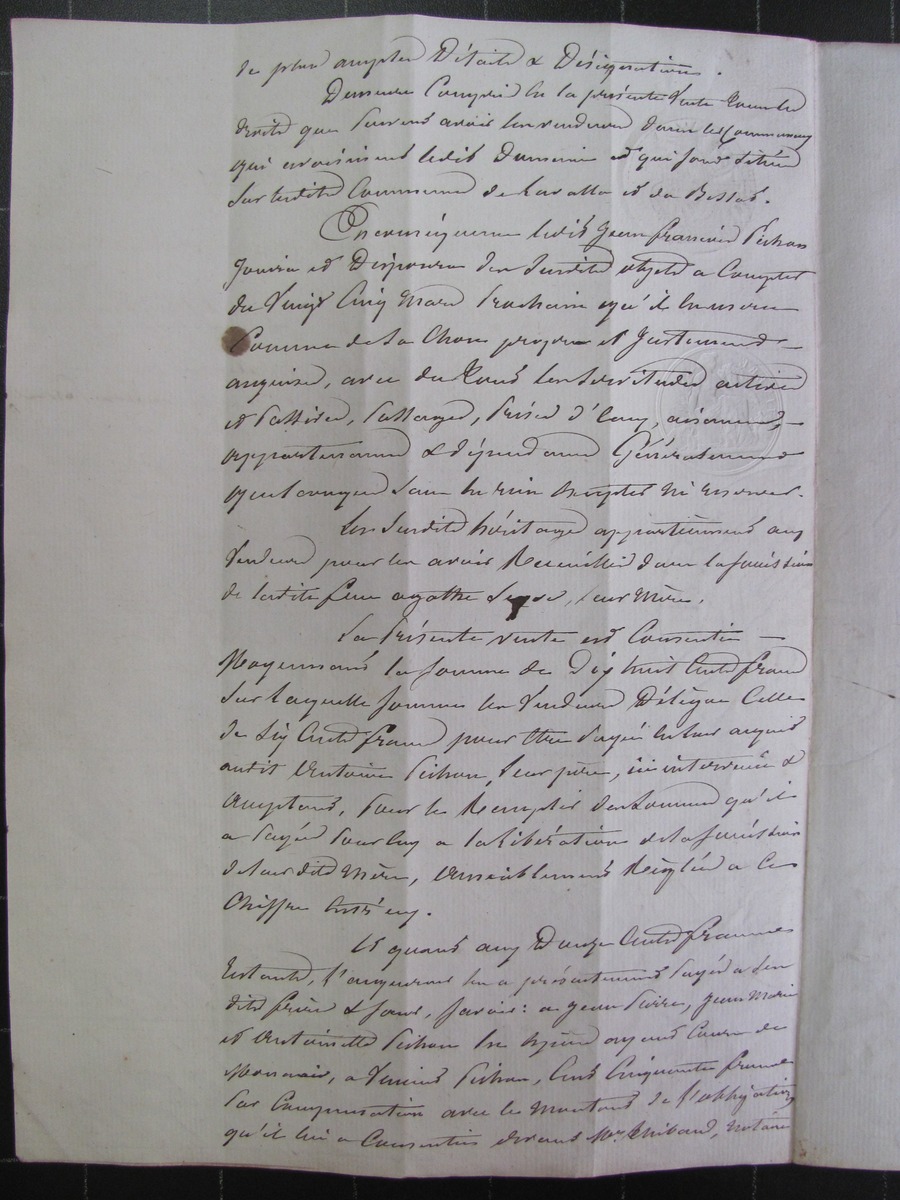 de plus amples Détails & Désignations.
Demeure Compris en la présente Vente Tous les
droits que peuvent avoir les vendeurs dans les Communaux
qui avoisinent ledit Domaine et qui sont situés
Sur lesdites Communes de Lavalla et du Bessat.
En conséquence ledit Jean François Pichon
Jouira et Disposera des Susdits objets a Compter
du Vingt Cinq Mars Prochain ainsi qu'il
Comme de Sa Chose propre et Justement
acquise, avec du tous les Servitudes actives
et Passives, Passages, Prises d'Eaux, aisances,
appartenances & dépendances Généralement
quelconques Sans en rien Excepter ni reserver.
Les Susdits héritages appartiennent aux
Vendeurs pour les avoir Recueillis dans la Succession
de ladite feue agathe leur Mère.
La Présente vente est Consentie
Moyennant la Somme de Dix huit Cents francs
Sur Laquelle Somme les Vendeurs Délègue Celle
de Six Cents francs pour être Payée en leur acquis
audit Antoine Pichon, Leur père, ici intervenu &
acceptant, Pour le Remplir des Sommes qu'il
a Payées Pour Eux a la Libération de la Succession
de leur dite Mère, amiablement Réglées a Ce
Chiffre Entr'eux.
Et quant aux Douze Cents francs
Restants, l'acquereur les a présentement Payés a Ses
dits frères & Sœurs, Savoir: a Jean Pierre, Jean Marie
et Antoinette Pichon en Espèces ayant Cours de
Monnaie, a Pichon, Cent Cinquante francs
Par Compensation avec le Montant de l'obligation
qu'il lui a Consentie devant Me Thibaud, Notaire